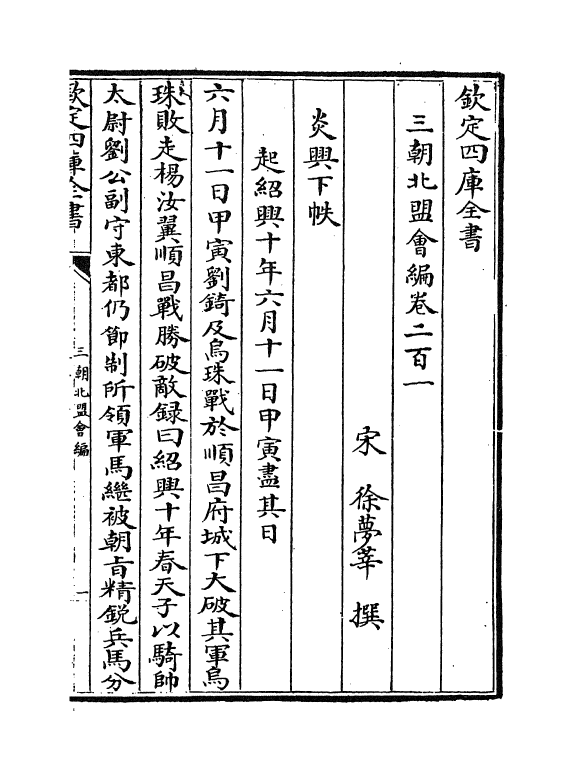 欽定四庫全書
三朝北盟會編卷二百一
宋 徐夢莘 撰
炎興下帙
起紹興十年六月十一日甲寅盡其日
六月十一日甲寅劉錡及烏珠戰於順昌府城下大破其軍烏
珠敗走楊汝翼順昌戰勝破敵錄曰紹興十年春天子以騎帥
太尉劉公副守東都仍節制所領軍馬繼被朝㫖精鋭兵馬分
欽定四庫全書
三朝北盟會編
一